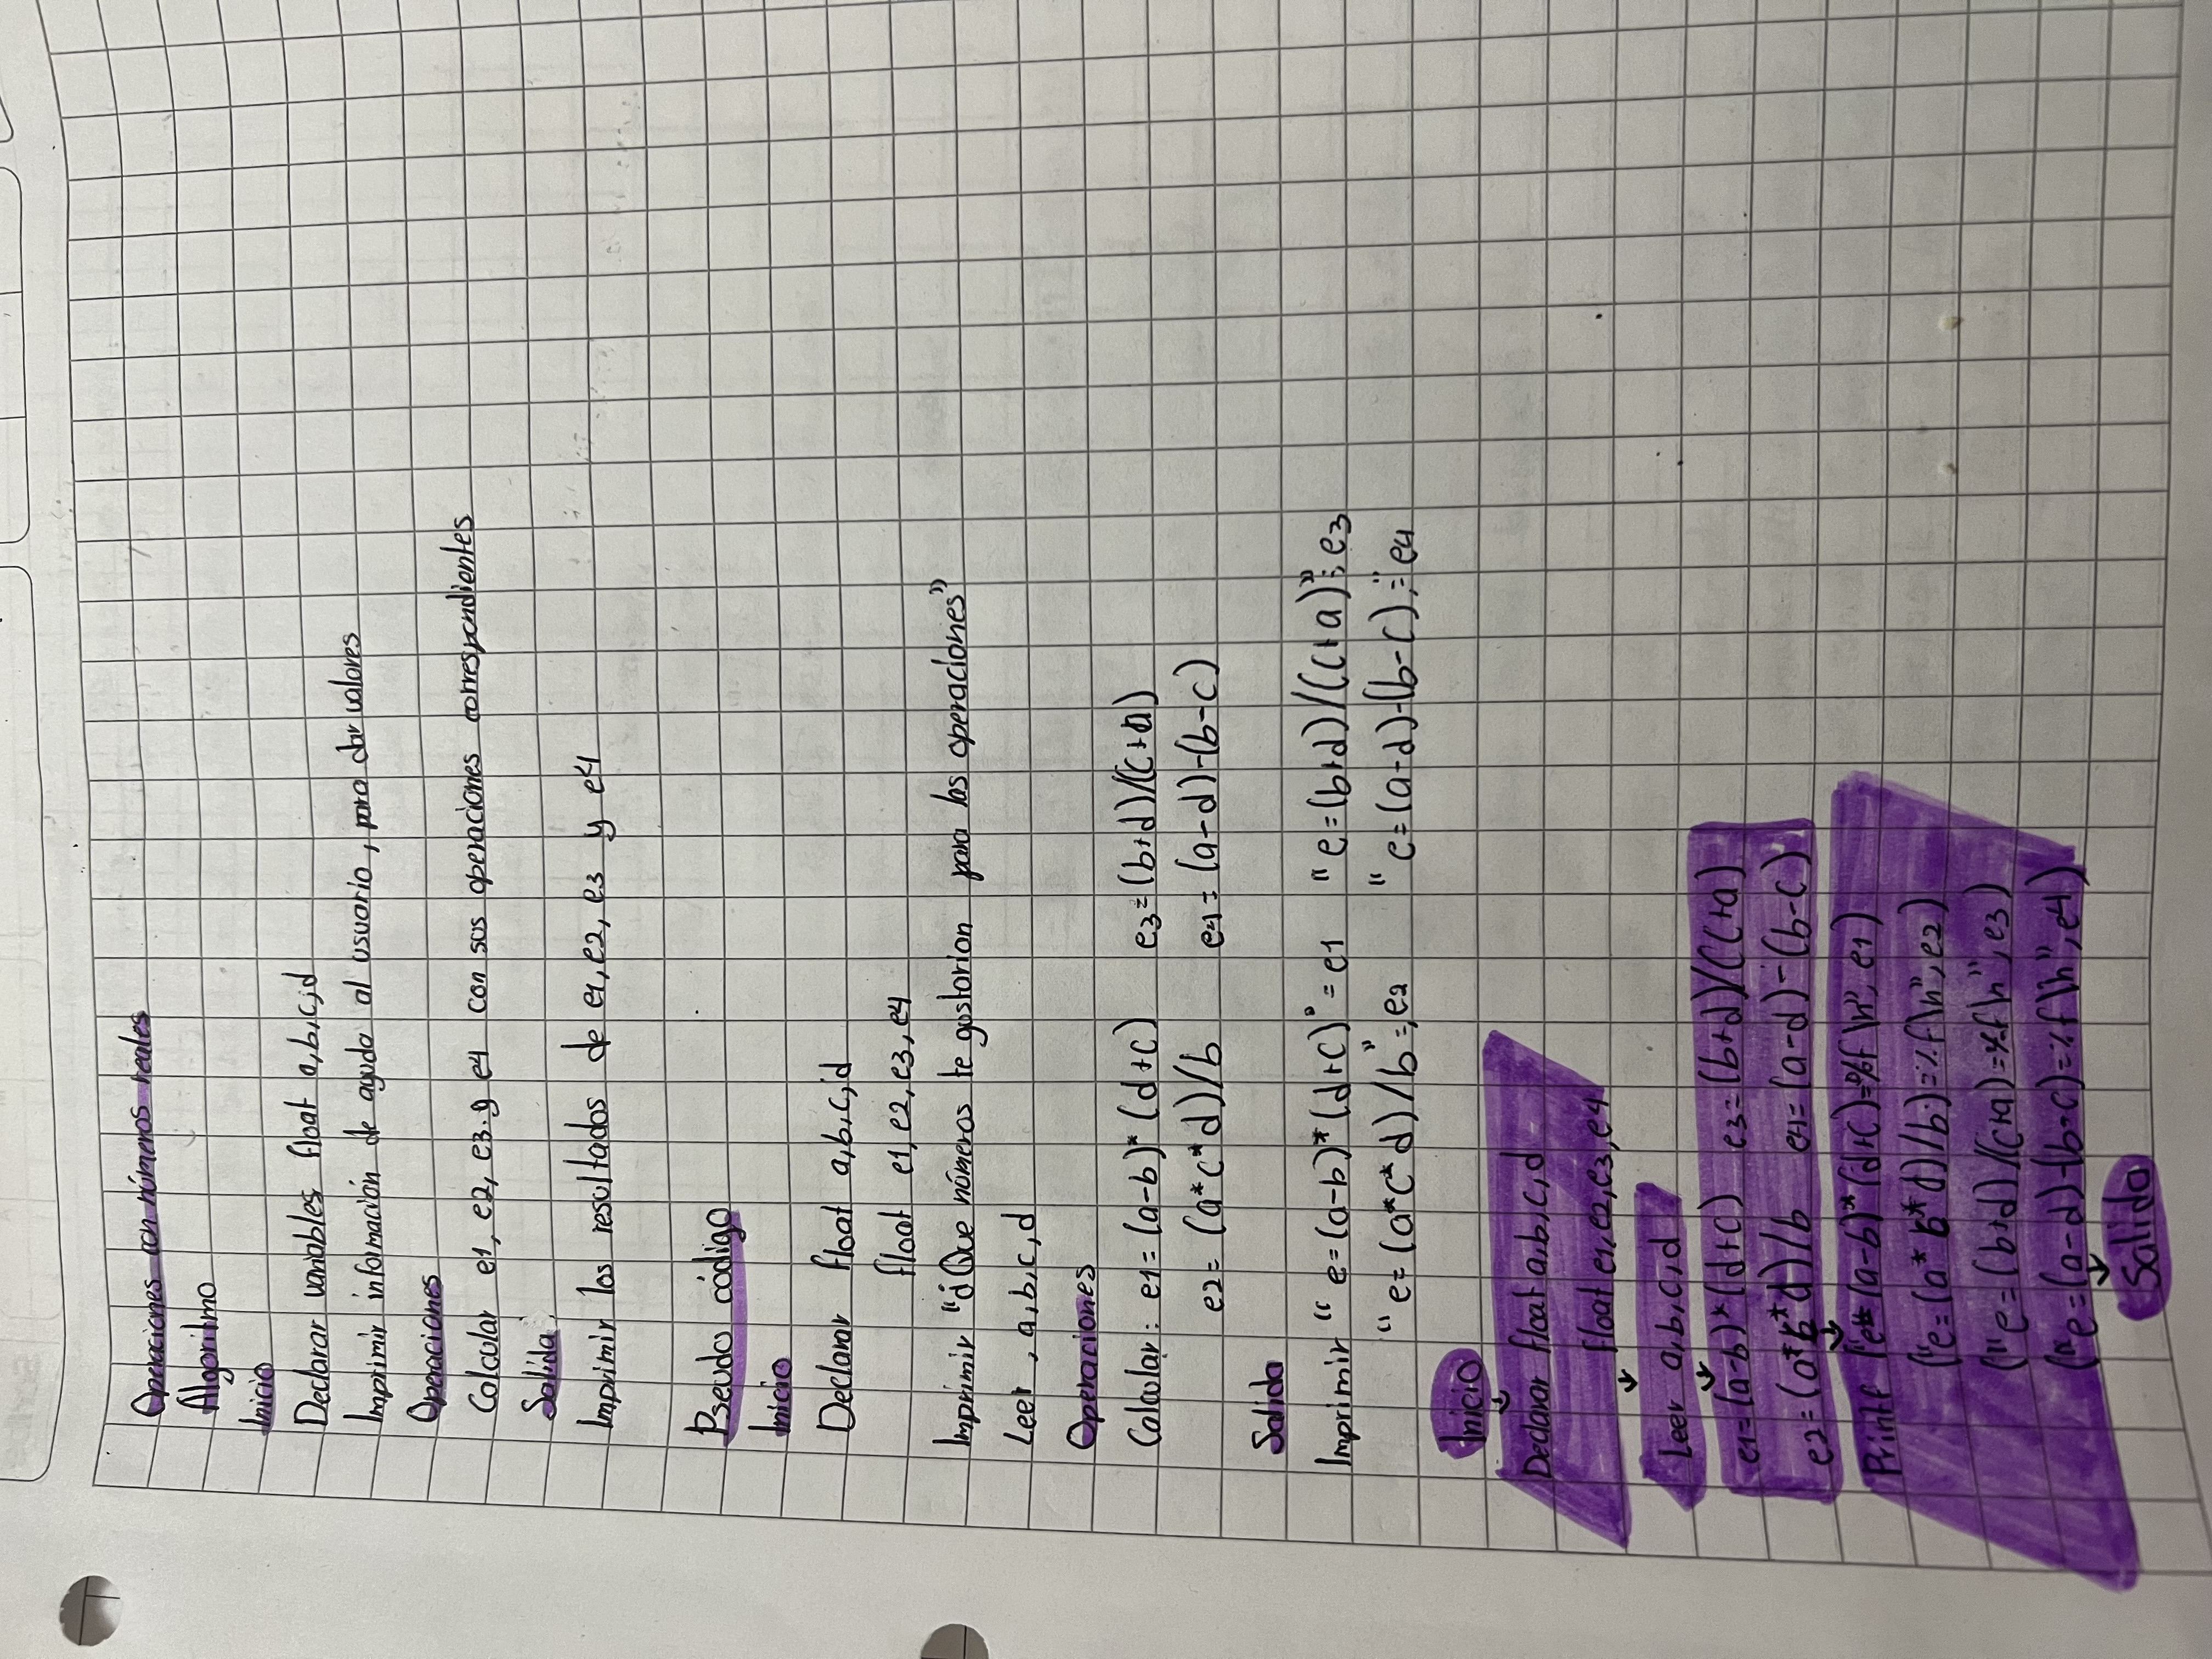 Operaciones con números reales
Algoritmo
Inicio
Declarar variables float a,b,c,d
Imprimir información de ayuda al usuario, para dar valores
Operaciones
Calcular e1, e2, e3. y e4 con sus operaciones correspondientes
Salida:
Imprimir los resultados de e1, e2, e3 y e4
Pseudo código
Inicio
Declarar float a,b,c,d
float e1, e2, e3, e4
Imprimir "¿Que números te gustarian para las operaciones"
Leer, a,b,c,d
Operaciones
Calcular: e1=(a-b)*(d+c) e3=(b+d)/(c+a)
e2=(a*c*d)/b e4=(a-d)-(b-c)
Salida
Imprimir "e=(a-b)*(d+c)"=e1 "e=(b+d)/(c+a)"= e3
"e=(a*c*d)/b"=,e2 "e=(a-d)-(b-c),=" e4
Inicio
Declarar float a,b,c,d
float e1, e2, e3, e4
Leer a,b,c,d
e1=(a-b)*(d+c) e3=(b+d)/(c+a)
e2=(a*b*d)/b e4=(a-d)-(b-c)
Printf ("e=(a-b)*(d+c)=%f \n", e1)
("e=(a*b*d)/b)=%f\n", e2)
("e=(b+d)/(c+a)=%f\n", e3)
("e=(a-d)-(b-c)=%f\n", e4)
Salida